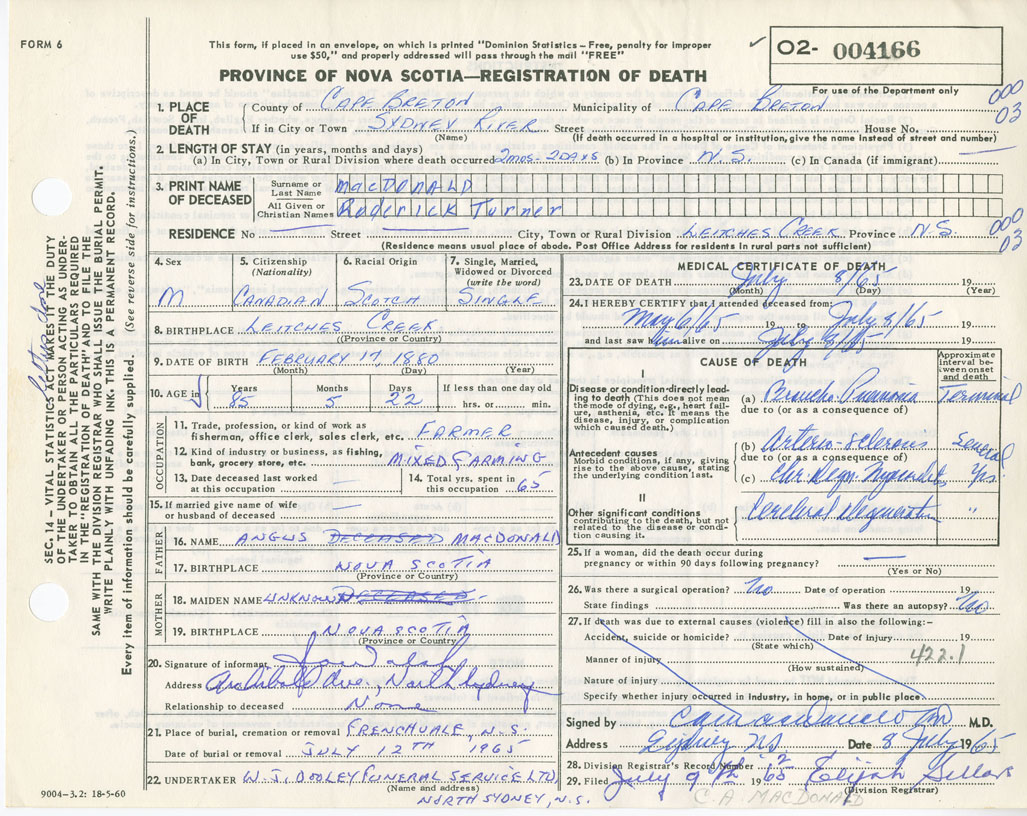 FORM 6
This form, if placed in an envelope, on which is printed "Dominion Statistics – Free, penalty for improper
use $50," and properly addressed will pass through the mail "FREE"
✓ O2- 004166
PROVINCE OF NOVA SCOTIA—REGISTRATION OF DEATH
For use of the Department only
000
03
1. PLACE OF DEATH
County of CAPE BRETON Municipality of CAPE BRETON
If in City or Town SYDNEY RIVER Street House No.
(Name) (If death occurred in a hospital or institution, give the name instead of street and number)
2. LENGTH OF STAY (in years, months and days)
(a) In City, Town or Rural Division where death occurred 2mos-2DAYS (b) In Province N.S. (c) In Canada (if immigrant)
3. PRINT NAME OF DECEASED
Surname or Last Name MacDONALD
All Given or Christian Names Roderick Turner
RESIDENCE No Street City, Town or Rural Division LEITCHES CREEK Province N.S.
000
03
(Residence means usual place of abode. Post Office Address for residents in rural parts not sufficient)
4. Sex
M
5. Citizenship
(Nationality)
CANADIAN
6. Racial Origin
SCOTCH
7. Single, Married,
Widowed or Divorced
(write the word)
SINGLE
8. BIRTHPLACE LEITCHES CREEK
(Province or Country)
9. DATE OF BIRTH FEBRUARY 17, 1880
(Month) (Day) (Year)
10. AGE
Years 85
Months 5
Days 22
If less than one day old
hrs. or min.
OCCUPATION
11. Trade, profession, or kind of work as
fisherman, office clerk, sales clerk, etc. FARMER
12. Kind of industry or business, as fishing,
bank, grocery store, etc. MIXED FARMING
13. Date deceased last worked
at this occupation
14. Total yrs. spent in
this occupation 65
15. If married give name of wife
or husband of deceased
FATHER
16. NAME ANGUS DECEASED MACDONALD
17. BIRTHPLACE NOVA SCOTIA
(Province or Country)
MOTHER
18. MAIDEN NAME UNKNOWN DECEASED
19. BIRTHPLACE NOVA SCOTIA
(Province or Country)
20. Signature of informant
Address Archibald Ave., North Sydney
Relationship to deceased None
21. Place of burial, cremation or removal FRENCHVALE, N.S.
Date of burial or removal JULY 12TH 1965
22. UNDERTAKER W.J. DOOLEY FUNERAL SERVICE LTD
(Name and address)
NORTH SYDNEY, N.S.
9004-3.2: 18-5-60
MEDICAL CERTIFICATE OF DEATH
23. DATE OF DEATH July 8/65 19
(Month) (Day) (Year)
24. I HEREBY CERTIFY that I attended deceased from:
May 6/65 19 to July 8/65 19
and last saw him alive on July 8/65 19
CAUSE OF DEATH
Approximate interval between onset and death
I
Disease or condition directly leading
to death (This does not mean
the mode of dying, e.g., heart failure,
asthenia, etc. It means the
disease, injury, or complication
which caused death.)
(a) Broncho Pneumonia Terminal
due to (or as a consequence of)
Antecedent causes
Morbid conditions, if any, giving
rise to the above cause, stating
the underlying condition last.
(b) Arterio-sclerosis Several
due to (or as a consequence of)
(c) Chr. Degn. Myocardit. Yrs.
II
Other significant conditions
contributing to the death, but not
related to the disease or condition
causing it.
Cerebral Degeneration "
25. If a woman, did the death occur during
pregnancy or within 90 days following pregnancy?
(Yes or No)
26. Was there a surgical operation? No Date of operation 19
State findings Was there an autopsy? No
27. If death was due to external causes (violence) fill in also the following:-
Accident, suicide or homicide? Date of injury 19
(State which)
422.1
Manner of injury
(How sustained)
Nature of injury
Specify whether injury occurred in industry, in home, or in public place
Signed by M.D.
Address Sydney NS Date 8 July 1965
28. Division Registrar's Record Number 2
29. Filed July 9th 1965 Elijah Sellars
(Division Registrar)
C. A. MACDONALD
SEC. 14 – VITAL STATISTICS ACT MAKES IT THE DUTY
OF THE UNDERTAKER OR PERSON ACTING AS UNDERTAKER
TO OBTAIN ALL THE PARTICULARS REQUIRED
IN THE "REGISTRATION OF DEATH" AND TO FILE THE
SAME WITH THE DIVISION REGISTRAR WHO SHALL ISSUE THE BURIAL PERMIT.
WRITE PLAINLY WITH UNFADING INK. THIS IS A PERMANENT RECORD.
Every item of information should be carefully supplied. (See reverse side for instructions.)